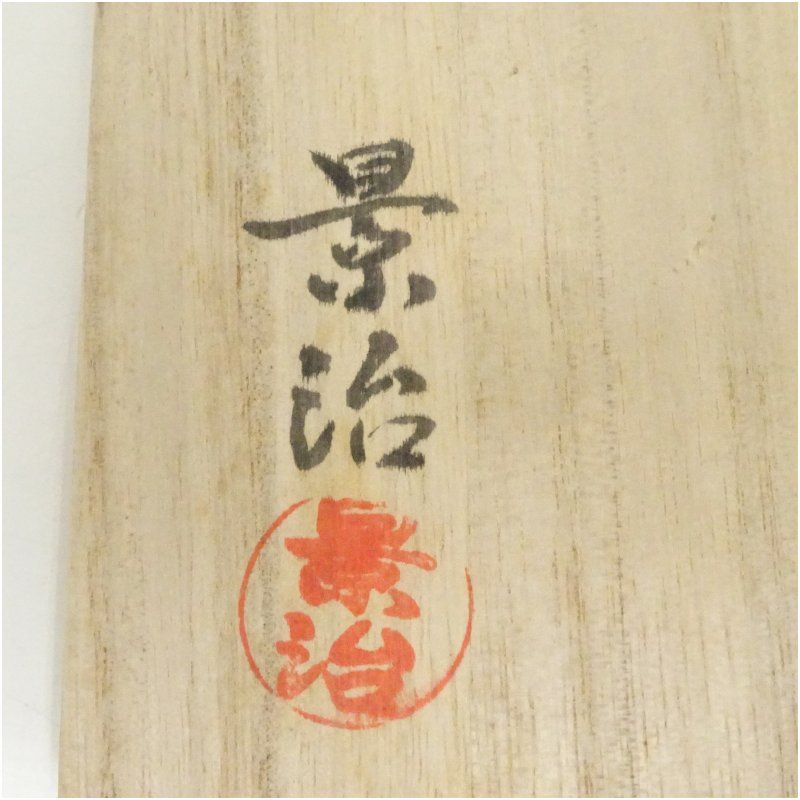 景治
景治